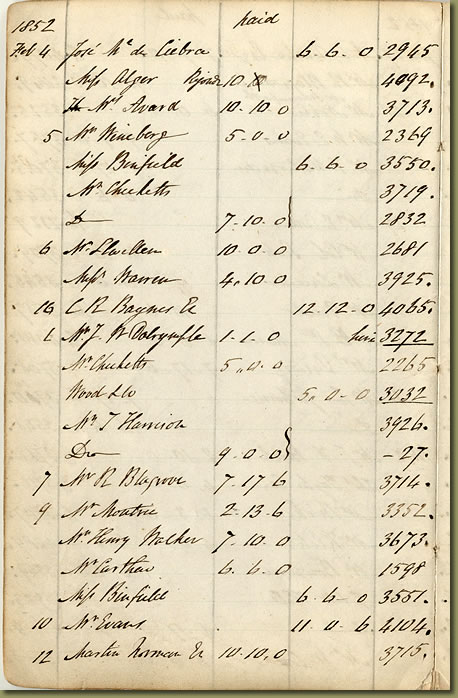 1852 paid
Feb 4 José Mª de Ciebra 6. 6. 0 2945
Miss Alger 10 4092.
Mrs Avard 10. 10. 0 3713.
5 Mr Wineberg 5. 0. 0 2369
Miss Binfield 6. 6. 0 3550.
Mr Checketts 3719.
Do 7. 10. 0 2832
6 Mr Llwellen 10. 0. 0 2681
Miss Warren 4. 10 0 3925.
16 C R Baynes Es 12. 12. 0 4065.
6 Mr J. W Dalrymple 1. 1. 0 hire 3272
Mr Checketts 5. 0. 0 2265
Wood & Co 5. 0. 0 3032
Mr T Harrison 3926.
Do 9. 0. 0 - 27.
7 Mr R Blagrove 7. 17 6 3714.
9 Mr Moutrie 2. 13. 6 3352.
Mr Henry Walker 7. 10. 0 3673.
Mr Carthew 6. 6. 0 1598
Miss Binfield 6. 6. 0 3551.
10 Mr Evans 11. 0. 6. 2104.
12 Martin Norman Es 10. 10. 0 3715.